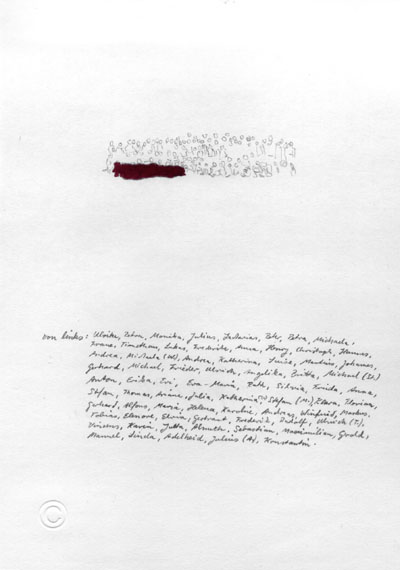 von links: Ulrike, Petra, Monika, Julius, Zacharias, Peter, Petra, Michaela,
Timotheus, Lukas, Frederike, Anna, Henry, Christoph, Hannes,
Andrea, Michaela (W), Andrea, Katharina, Luise, Markus, Johannes,
Gerhard, Michael, Frieder, Ulrich, Angelika, Britta, Michael (Zi.)
Anton, Erika, Evi, Eva-Maria, Ruth, Silvia, Frieda, Anna,
Stefan, Thomas, Ariane, Julia, Katharina, Stefan (M.), Florian,
Gerhard, Alfons, Maria, Helena, Karoline, Andreas, Winfried, Markus,
Tobias, Eleonore, Gertraut, Frederik, Rudolf, Ulrich (T.),
Vinzenz, Karin, Jutta, Almuth, Sebastian, Maximilian, Gerda,
Manuel, Linda, Adelheid, Julius (A), Konstantin.
©